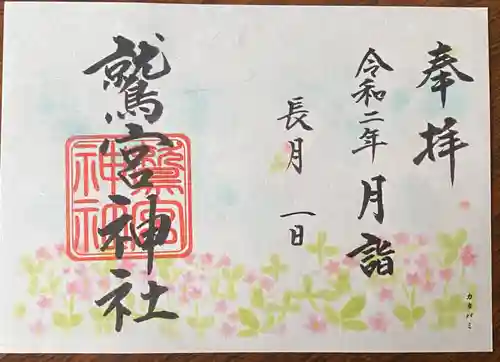 奉拝
令和二年 月詣
長月 一日
鷲宮神社
鷲宮
神社
カタバミ